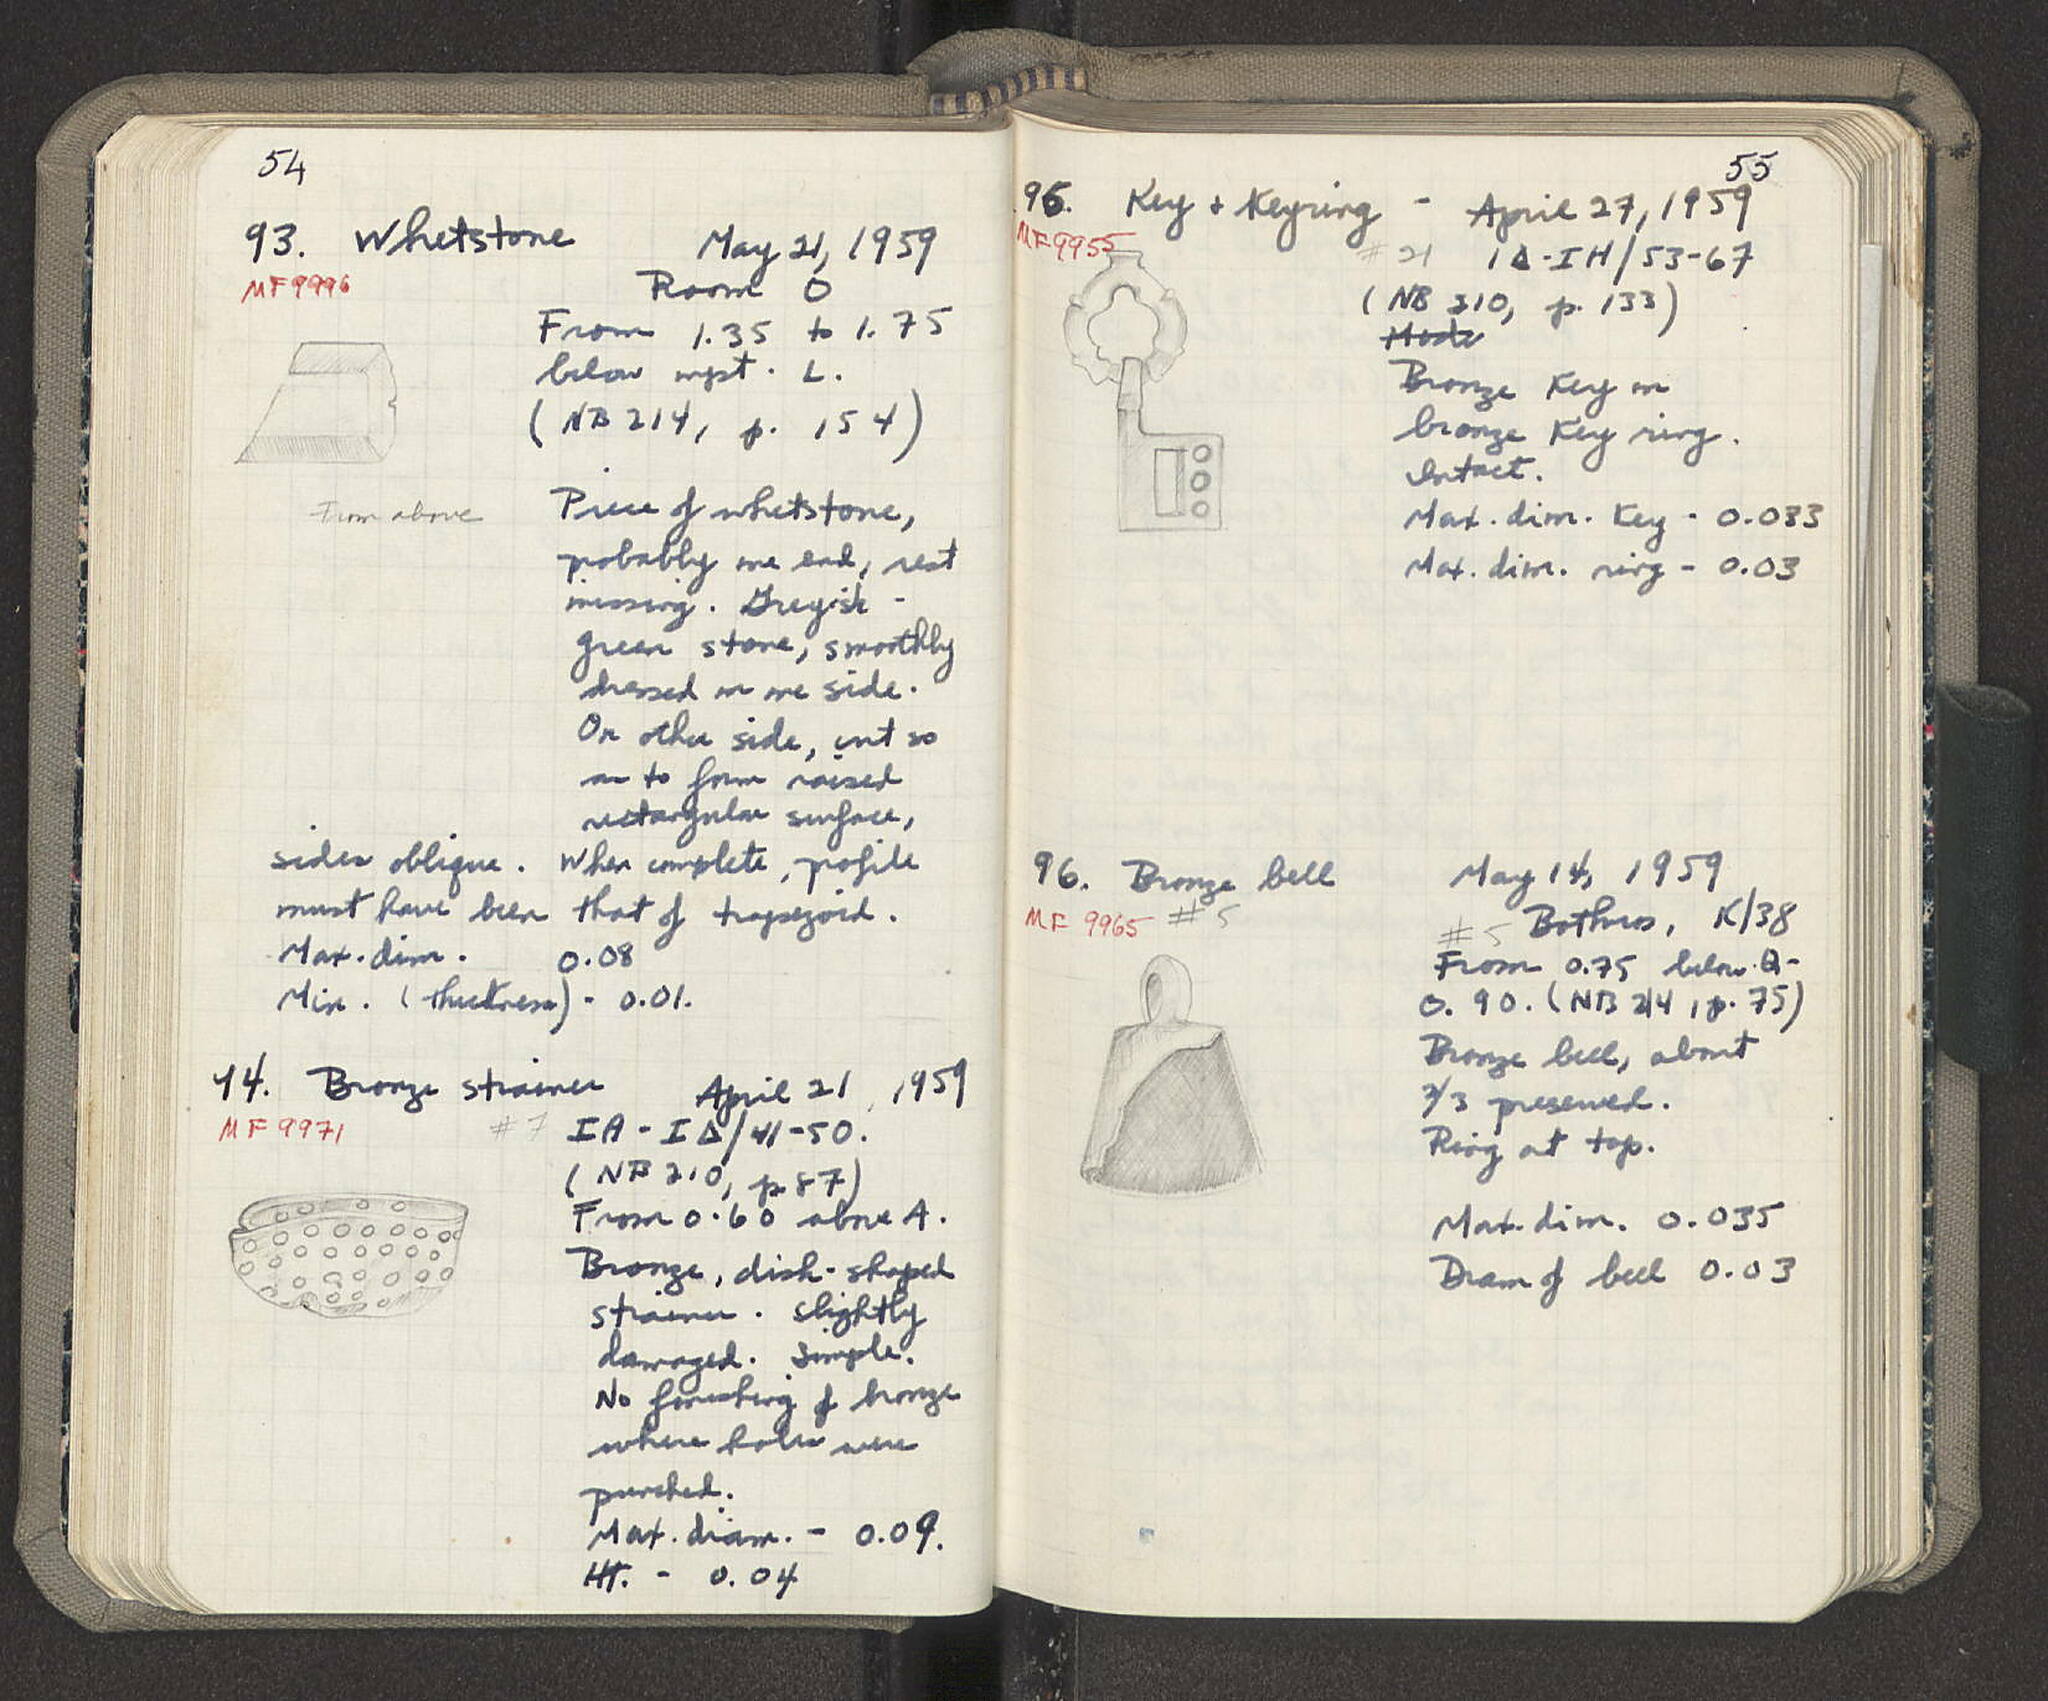 54
93. Whetstone May 21, 1959
MF 9996
Room O
From 1.35 to 1.75
below mpt. L.
(NB 214, p. 154)
From above
Piece of whetstone,
probably one end, rest
missing. Greyish-
green stone, smoothly
dressed on one side.
On other side, cut so
as to form raised
rectangular surface,
sides oblique. When complete, profile
must have been that of trapezoid.
Max. dim. 0.08
Min. (thickness) - 0.01.
94. Bronze strainer April 21, 1959
MF 9971 #7 IA-IΔ/41-50.
(NB 210, p 87)
From 0.60 above A.
Bronze, dish-shaped
strainer. Slightly
damaged. Simple.
No finishing of bronze
where holes were
punched.
Max. diam. - 0.09.
Ht. - 0.04
55
95. Key + Keyring - April 27, 1959
MF 9955 #21 IΔ-IH/53-67
(NB 210, p. 133)
Bronze key on
bronze key ring.
Intact.
Max. dim. Key - 0.033
Max. dim. ring - 0.03
96. Bronze bell May 14, 1959
MF 9965 #5
#5 Bothros, K/38
From 0.75 below Q-
0.90. (NB 214, p. 75)
Bronze bell, about
2/3 preserved.
Ring at top.
Max. dim. 0.035
Diam of bell 0.03